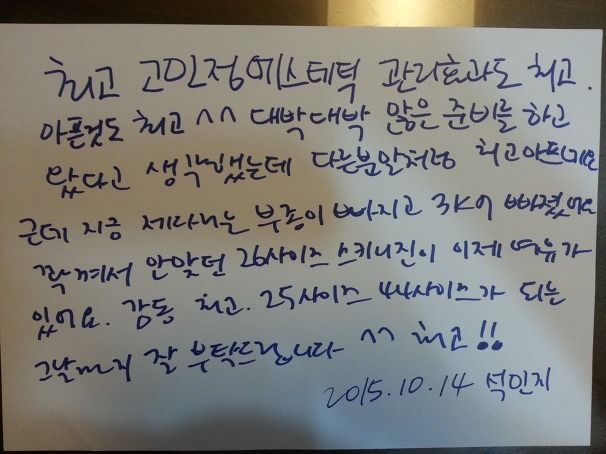 최고 고민정에스테틱 관리효과도 최고.
아픈것도 최고 ^^ 대박대박 많은 준비를 하고
왔다고 생각했는데 다른분말처럼 최고아프네요
근데 지금 제다리는 부종이 빠지고 3kg 빠졌어요
꽉껴서 안맞던 26사이즈 스키니진이 이제 여유가
있어요. 감동 최고. 25사이즈 44사이즈가 되는
그날까지 잘 부탁드립니다 ^^ 최고!!
2015.10.14 석민지